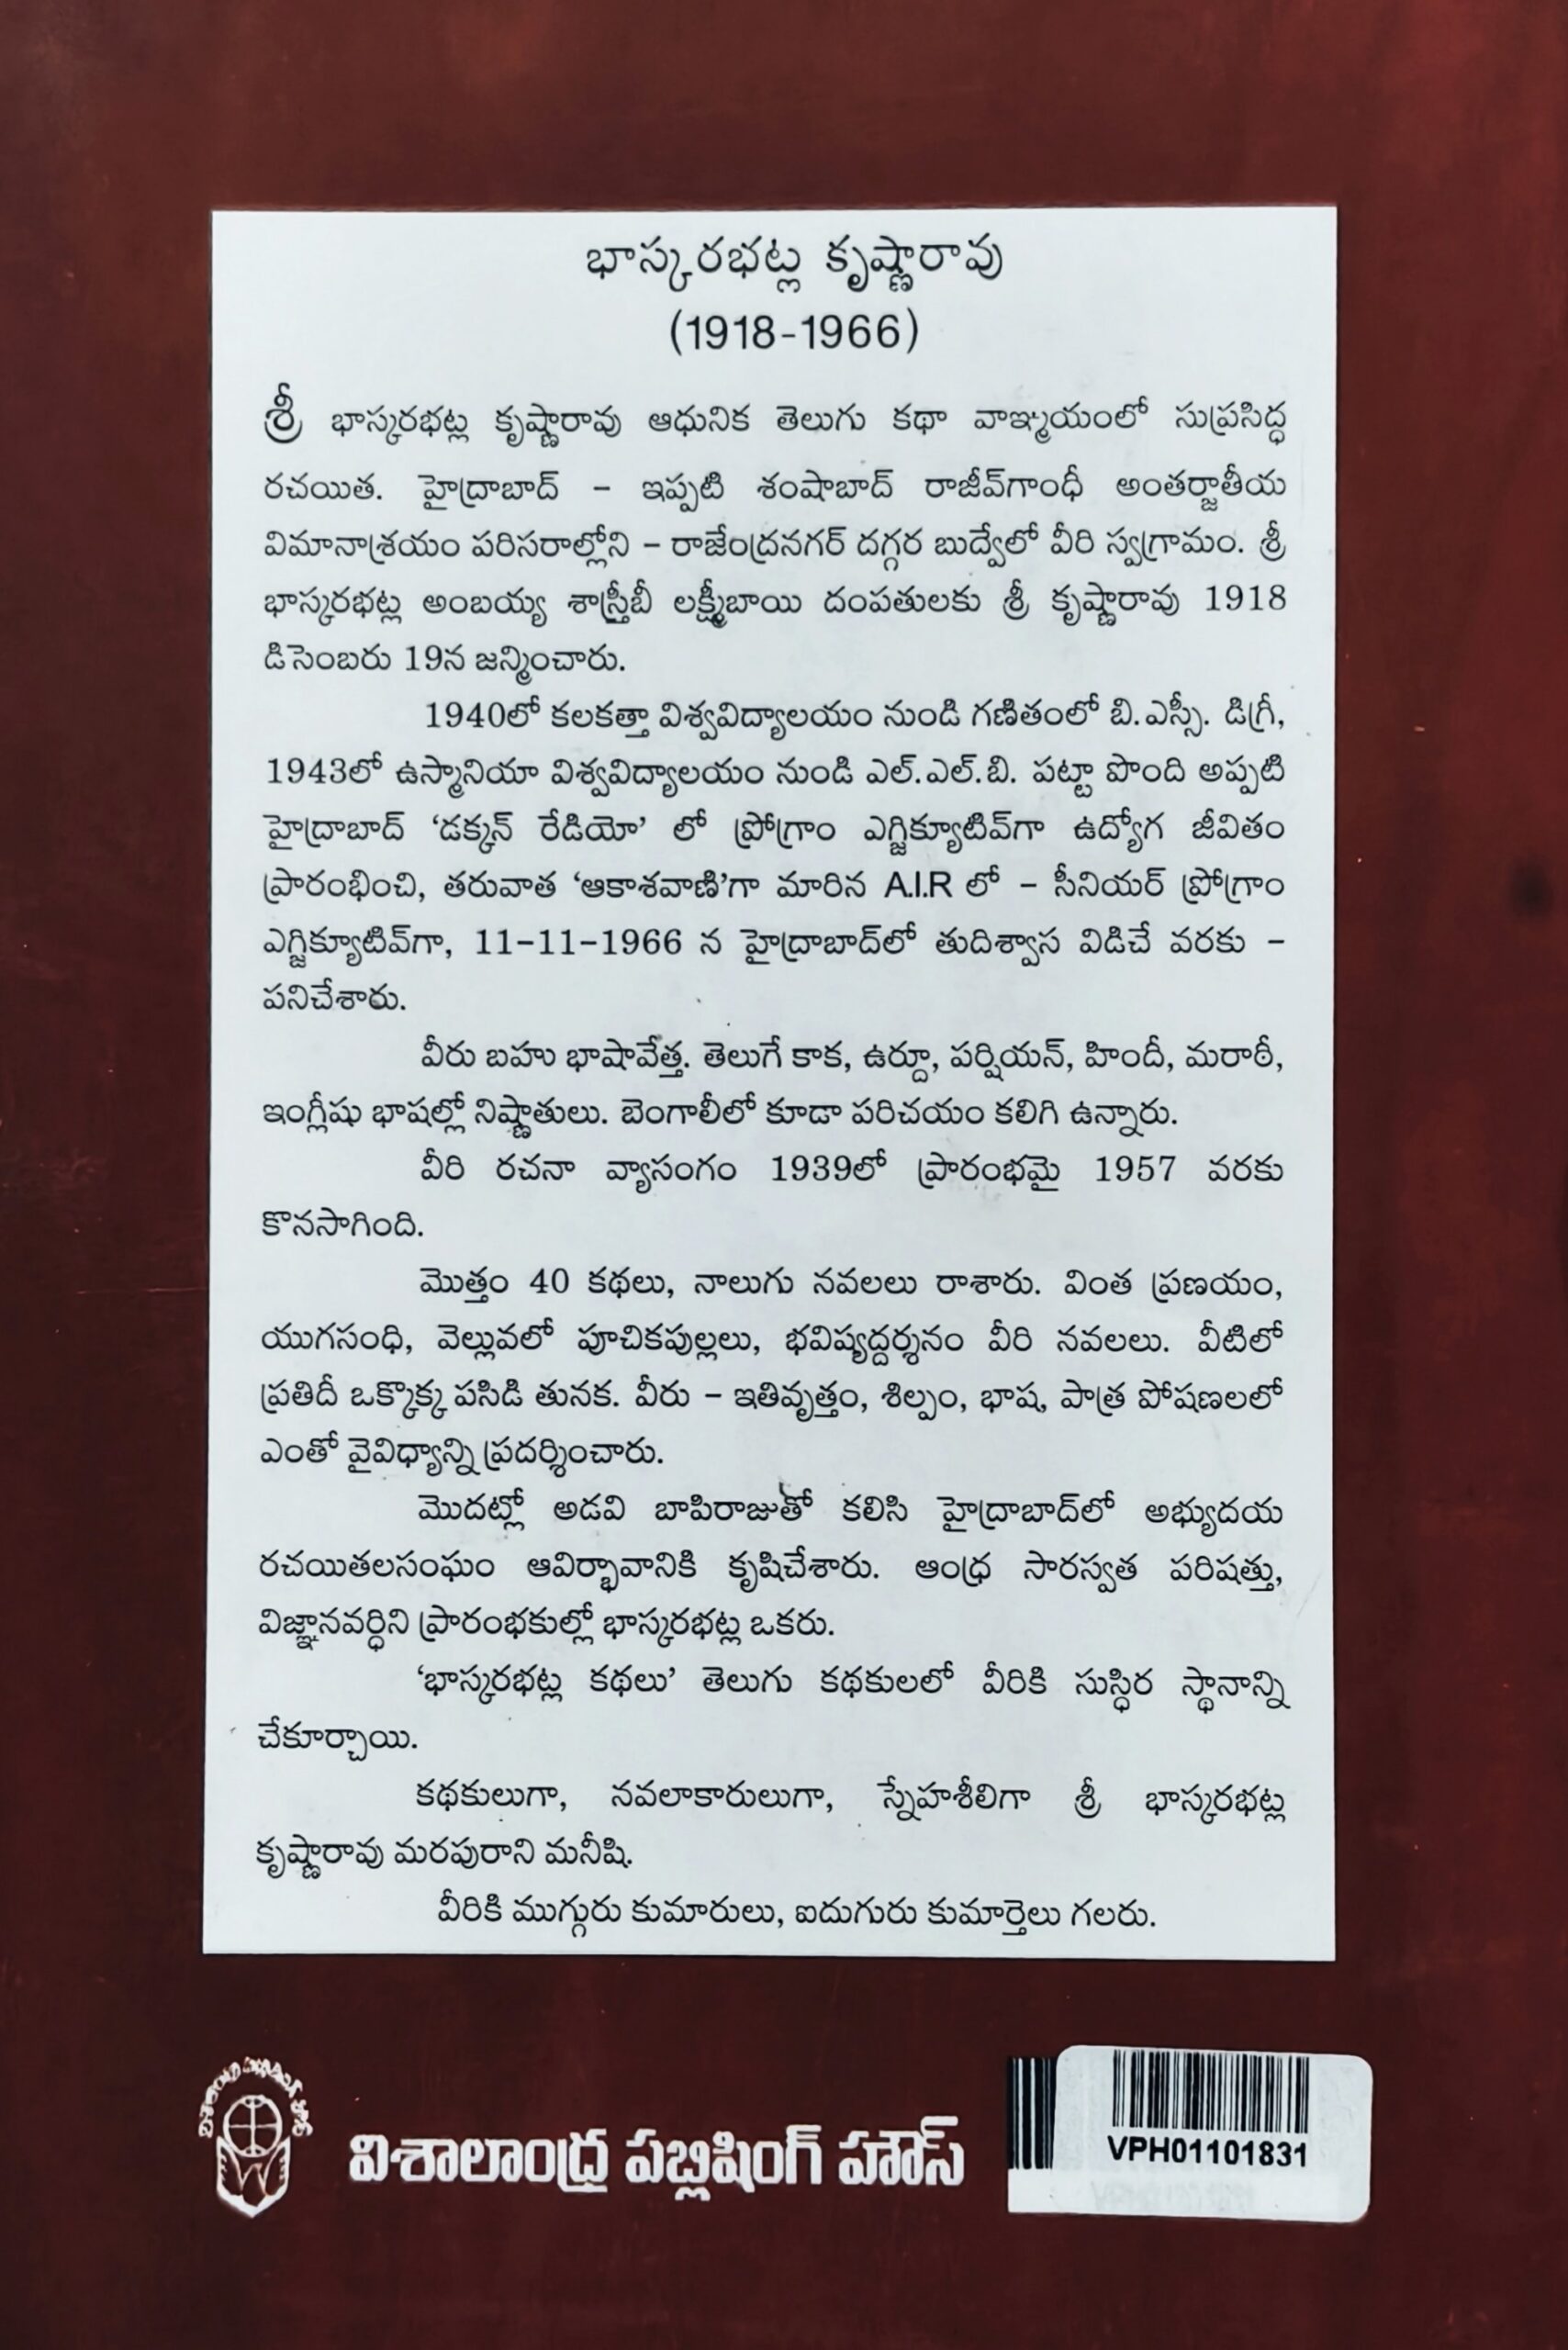 భాస్కరభట్ల కృష్ణారావు
(1918-1966)
శ్రీ భాస్కరభట్ల కృష్ణారావు ఆధునిక తెలుగు కథా వాఙ్మయంలో సుప్రసిద్ధ
రచయిత. హైద్రాబాద్ – ఇప్పటి శంషాబాద్ రాజీవ్‌గాంధీ అంతర్జాతీయ
విమానాశ్రయం పరిసరాల్లోని – రాజేంద్రనగర్ దగ్గర బుద్వేలో వీరి స్వగ్రామం. శ్రీ
భాస్కరభట్ల అంబయ్య శాస్త్రీబీ లక్ష్మీబాయి దంపతులకు శ్రీ కృష్ణారావు 1918
డిసెంబరు 19న జన్మించారు.
1940లో కలకత్తా విశ్వవిద్యాలయం నుండి గణితంలో బి.ఎస్సీ. డిగ్రీ,
1943లో ఉస్మానియా విశ్వవిద్యాలయం నుండి ఎల్.ఎల్.బి. పట్టా పొంది అప్పటి
హైద్రాబాద్ ‘డక్కన్ రేడియో’ లో ప్రోగ్రాం ఎగ్జిక్యూటివ్‌గా ఉద్యోగ జీవితం
ప్రారంభించి, తరువాత ‘ఆకాశవాణి’గా మారిన A.I.R లో – సీనియర్ ప్రోగ్రాం
ఎగ్జిక్యూటివ్‌గా, 11-11-1966 న హైద్రాబాద్‌లో తుదిశ్వాస విడిచే వరకు –
పనిచేశారు.
వీరు బహు భాషావేత్త. తెలుగే కాక, ఉర్దూ, పర్షియన్, హిందీ, మరాఠీ,
ఇంగ్లీషు భాషల్లో నిష్ణాతులు. బెంగాలీలో కూడా పరిచయం కలిగి ఉన్నారు.
వీరి రచనా వ్యాసంగం 1939లో ప్రారంభమై 1957 వరకు
కొనసాగింది.
మొత్తం 40 కథలు, నాలుగు నవలలు రాశారు. వింత ప్రణయం,
యుగసంధి, వెల్లువలో పూచికపుల్లలు, భవిష్యద్దర్శనం వీరి నవలలు. వీటిలో
ప్రతిదీ ఒక్కొక్క పసిడి తునక. వీరు – ఇతివృత్తం, శిల్పం, భాష, పాత్ర పోషణలలో
ఎంతో వైవిధ్యాన్ని ప్రదర్శించారు.
మొదట్లో అడవి బాపిరాజుతో కలిసి హైద్రాబాద్‌లో అభ్యుదయ
రచయితలసంఘం ఆవిర్భావానికి కృషిచేశారు. ఆంధ్ర సారస్వత పరిషత్తు,
విజ్ఞానవర్ధిని ప్రారంభకుల్లో భాస్కరభట్ల ఒకరు.
‘భాస్కరభట్ల కథలు’ తెలుగు కథకులలో వీరికి సుస్థిర స్థానాన్ని
చేకూర్చాయి.
కథకులుగా, నవలాకారులుగా, స్నేహశీలిగా శ్రీ భాస్కరభట్ల
కృష్ణారావు మరపురాని మనీషి.
వీరికి ముగ్గురు కుమారులు, ఐదుగురు కుమార్తెలు గలరు.
విశాలాంధ్ర పబ్లిషింగ్ హౌస్
విశాలాంధ్ర పబ్లిషింగ్ హౌస్
VPH01101831